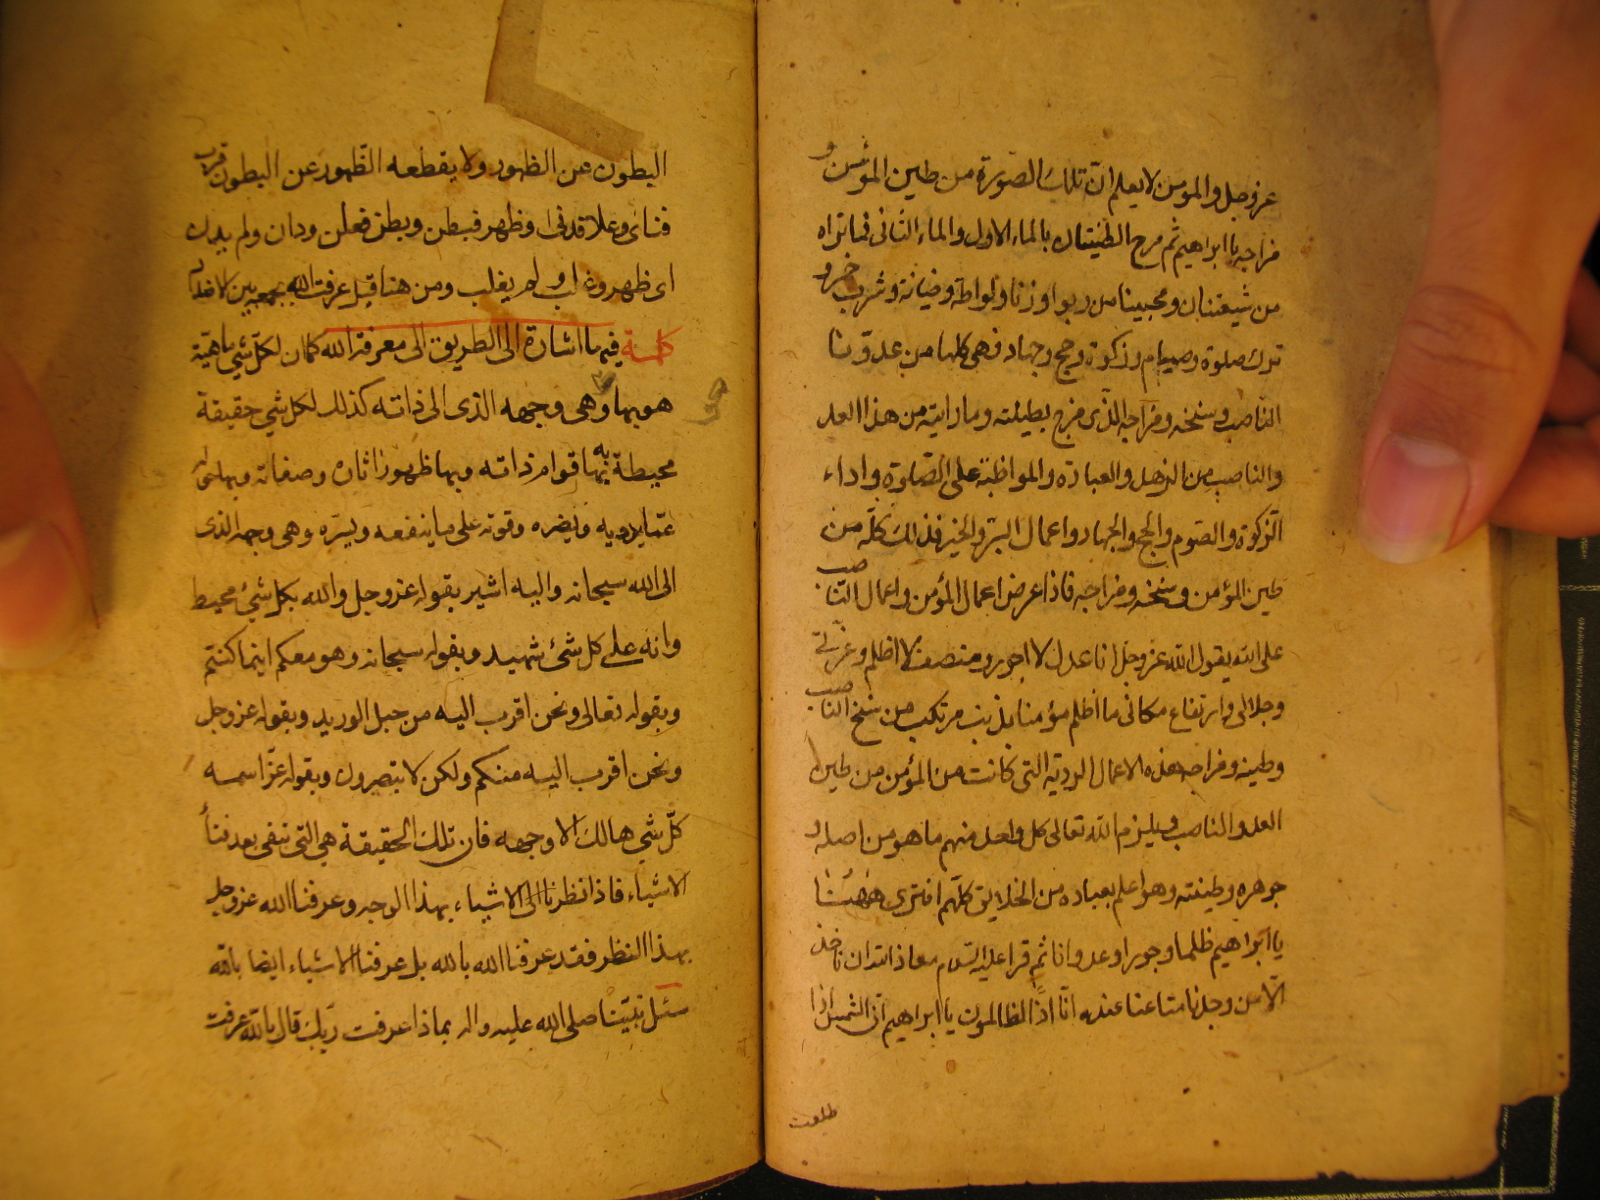 عز وجل والمؤمن لا يعلم ان تلك الصورة من طين المؤمن و
مزاجه يا ابراهيم ثم مزج الطينتان بالماء الاول والماء الثاني فما تراه
من شيعتنا ومحبينا من ربوا وزنا ولواطة وخيانة وشرب خمر و
ترك صلوة وصيام وزكوة وحج وجهاد فهى كلها من عدونا
الناصب وسنخه ومزاجه الذى مزج بطينته وما رايته من هذا العد
والناصب من الزهد والعبادة والمواظبة على الصلوة واداء
الزكوة والصوم والحج والجهاد واعمال البر والخير فذلك كله من
طين المؤمن وسنخه ومزاجه فاذا عرض اعمال المؤمن واعمال الناصب
على الله يقول الله عز وجل انا عدل لا اجور ومنصف لا اظلم وعزتى
وجلالى وارتفاع مكانى ما اظلم مؤمنا بذنب مرتكب من سنخ الناصب
وطينه ومزاجه هذه الاعمال الردية التى كانت من المؤمن من طين
العدو والناصب ويلزم الله تعالى كل واحد منهم ما هو من اصله و
جوهره وطينته وهو اعلم بعباده من الخلايق كلهم افترى ههنا
يا ابراهيم ظلما وجورا وعدوانا ثم قرا عليه السلم معاذ الله ان ناخذ
الا من وجدنا متاعنا عنده انا اذا لظالمون يا ابراهيم ان الشمس اذا
طلعت
البطون عن الظهور ولا يقطعه الظهور عن البطون قرب
فناى وعلا فدنى وظهر فبطن وبطن فعلن ودان ولم يدن
اى ظهر وغلب ولم يغلب ومن هنا قيل عرفت الله بجمعه بين الاضداد
كلمة فيها اشارة الى الطريق الى معرفة الله كما ان لكل شئ ماهية
هو بها هو وهى وجهه الذى الى ذاته كذلك لكل شئ حقيقة
محيطة به بها قوام ذاته وبها ظهور اثاره وصفاته وبها حوله
عما يرديه ويضره وقوته على ما ينفعه ويسره وهى وجهه الذى
الى الله سبحانه واليه اشير بقوله عز وجل والله بكل شئ محيط
وانه على كل شئ شهيد وبقوله سبحانه وهو معكم اينما كنتم
وبقوله تعالى ونحن اقرب اليه من حبل الوريد وبقوله عز وجل
ونحن اقرب اليه منكم ولكن لا تبصرون وبقوله عز اسمه
كل شئ هالك الا وجهه فان تلك الحقيقة هى التى تبقى بعد فناء
الاشياء فاذا نظرنا الى الاشياء بهذا الوجه وعرفنا الله عز وجل
بهذا النظر فقد عرفنا الله بالله بل عرفنا الاشياء ايضا بالله
سئل نبينا صلى الله عليه واله بماذا عرفت ربك قال بالله عرفت